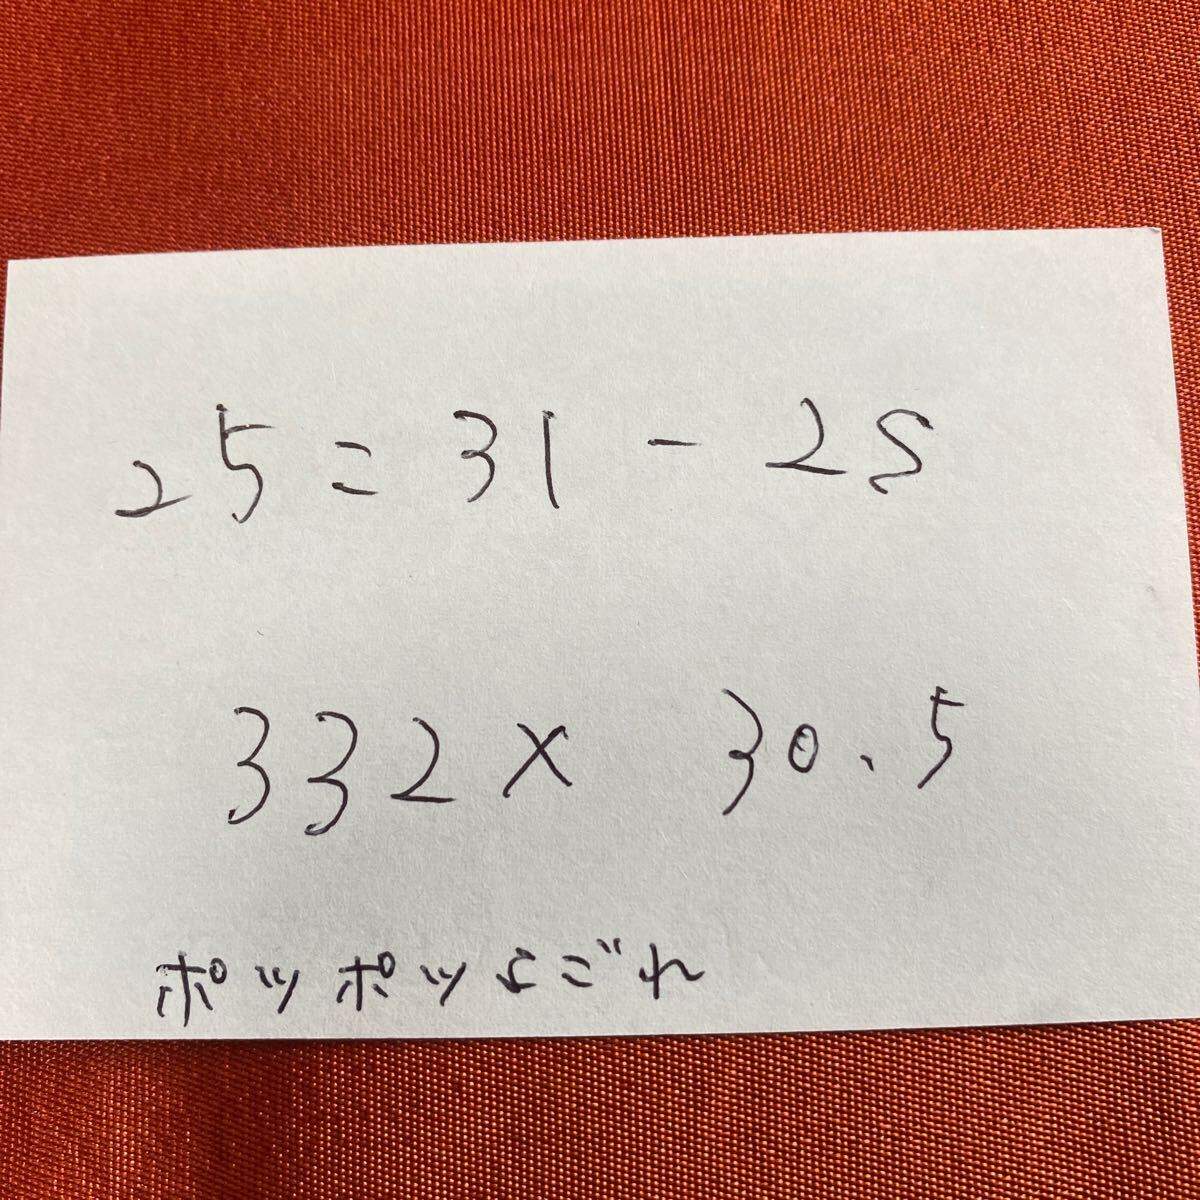 25=31-25
332× 30.5
ポツポツよごれ